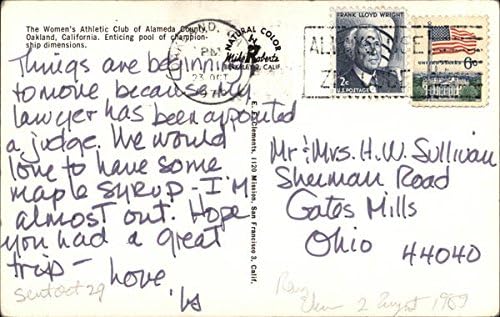 The Women's Athletic Club of Alameda County,
Oakland, California. Enticing pool of champion-
ship dimensions.
Things are beginning
to move because my
lawyer has been appointed
a judge. We would
love to have some
maple syrup - I'm
almost out. Hope
you had a great
trip -
love,
sent oct 29
PM
23 OCT
NATURAL COLOR
Mike Roberts
BERKELEY, CALIF.
E. F. Clements, 1120 Mission, San Francisco 3, Calif.
FRANK LLOYD WRIGHT
2c
U.S. POSTAGE
UNITED STATES
6c
Mr & Mrs. H.W. Sullivan
Sherman Road
Gates Mills
Ohio
44040
2 August 1969